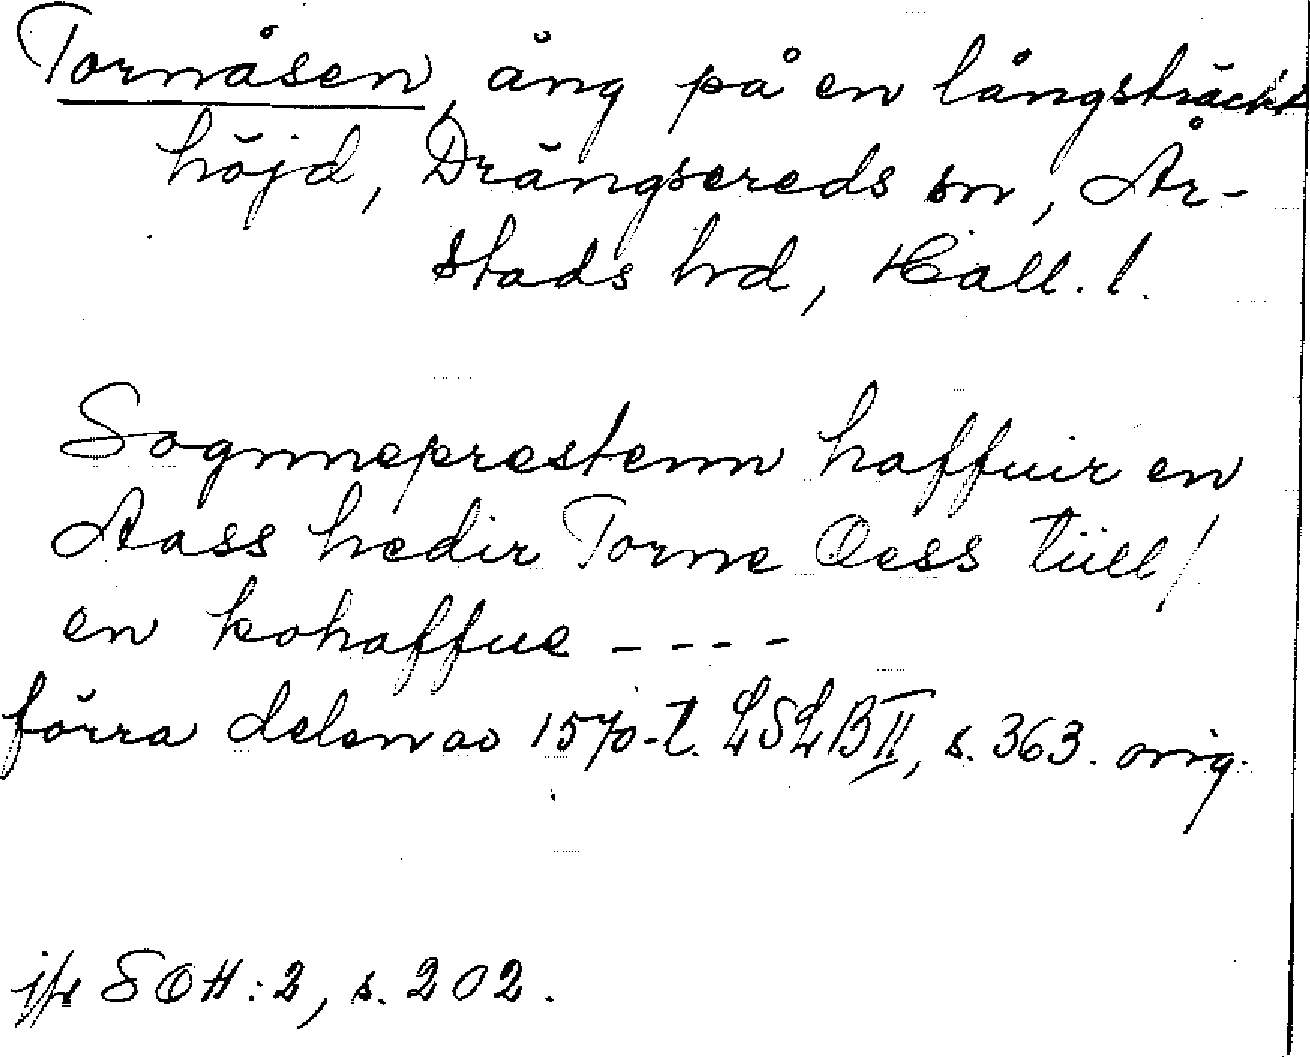 Tornåsen, äng på en långsträckt
höjd, Drängsereds sn, År-
stads hd, Hall. l.
Sognneprestenn haffuir en
Aass hedir Torne Oess tiill/
en kohaffue ----
förra delen av 1570-t. LSLB II, s. 363. orig.
jfr SOH:2, s. 202.